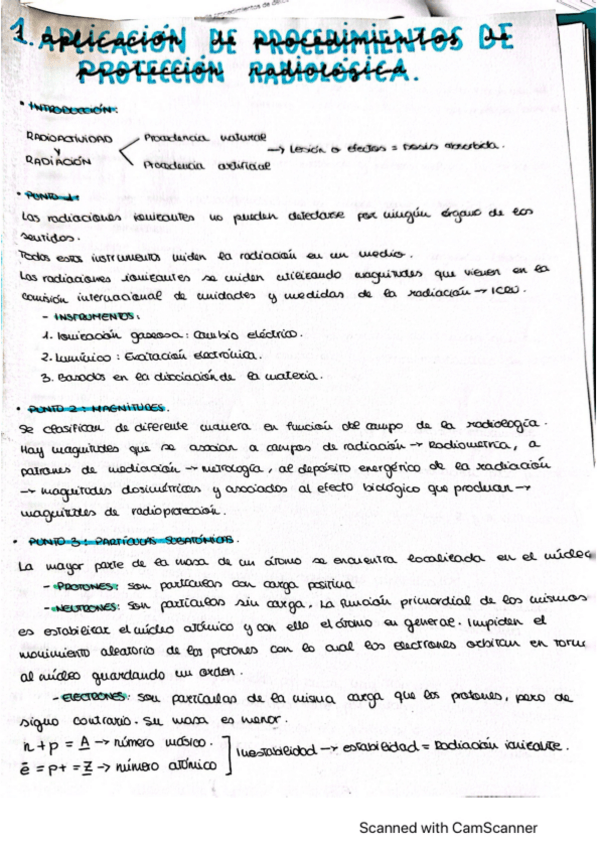 1. APLICACIÓN DE PROCEDIMIENTOS DE
PROTECCIÓN RADIOLÓGICA.
• INTRODUCCIÓN:
RADIOACTIVIDAD
Y
RADIACIÓN
Procedencia natural
Procedencia artificial
→ Lesión o efectos = Dosis absorbida.
• PUNTO 1:
Las radiaciones ionizantes no pueden detectarse por ningún órgano de los
sentidos.
Todos estos instrumentos miden la radiación en un medio.
Las radiaciones ionizantes se miden utilizando magnitudes que vienen en la
comisión internacional de unidades y medidas de la radiación → ICRU.
- INSTRUMENTOS:
1. Ionización gaseosa: Cambio eléctrico.
2. Lumínico: Excitación electrónica.
3. Basados en la disociación de la materia.
• PUNTO 2: MAGNITUDES.
Se clasifican de diferente manera en función del campo de la radiología.
Hay magnitudes que se asocian a campos de radiación → Radiometría, a
patrones de mediación → metrología, al depósito energérico de la radiación
→ magnitudes dosimétricas y asociados al efecto biológico que producen →
magnitudes de radioprotección.
• PUNTO 3: PARTÍCULAS SUBATÓMICAS.
La mayor parte de la masa de un átomo se encuentra localizada en el núcleo
- PROTONES: son partículas con carga positiva
- NEUTRONES: son partículas sin carga. La función primordial de los mismos
es estabilizar el núcleo atómico y con ello el átomo en general. Impiden el
movimiento aleatorio de los protones con lo cual los electrones orbitan en torno
al núcleo guardando un orden.
- ELECTRONES: son partículas de la misma carga que los protones, pero de
signo contrario. Su masa es menor.
n + p = A → número másico.
ē = p+ = Z → número atómico
Inestabilidad → estabilidad = Radiación ionizante.
Scanned with CamScanner